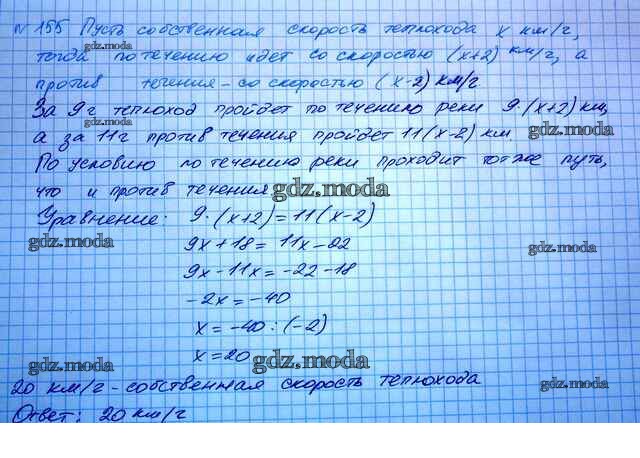 №155 Пусть собственная скорость теплохода х км/г,
тогда по течению идет со скоростью (х+2) км/г, а
gdz.moda
против течения - со скоростью (х-2) км/г.
За 9г теплоход пройдет по течению реки 9·(х+2) км,
gdz.moda
а за 11г против течения пройдет 11(х-2) км.
gdz.moda
По условию по течению реки проходит тот же путь,
что и против течения
gdz.moda
Уравнение: 9·(х+2)=11(х-2)
gdz.moda
9х+18=11х-22
gdz.moda
9х-11х=-22-18
-2х=-40
х=-40:(-2)
х=20
gdz.moda
gdz.moda
20 км/г - собственная скорость теплохода
gdz.moda
Ответ: 20 км/г